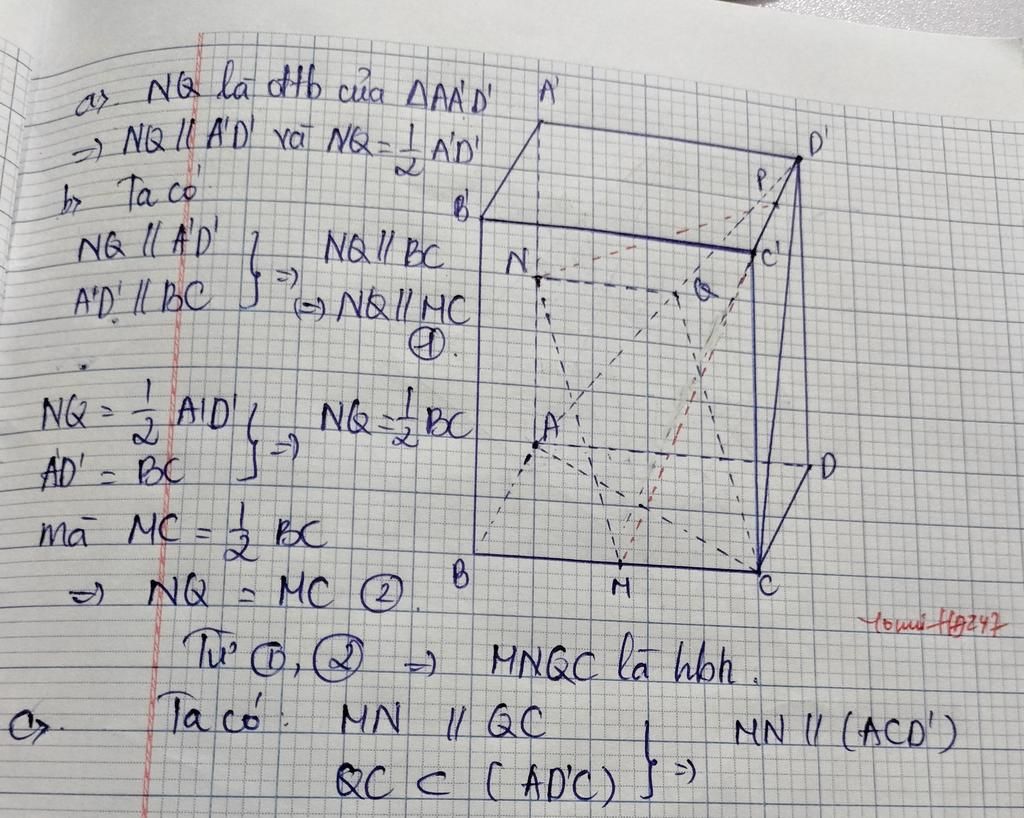 a>. NQ là đtb của ΔAA'D'
=> NQ // A'D' và NQ = 1/2 A'D'
b> Ta có
NQ // A'D'
A'D' // BC } => NQ // BC
(=) NQ // MC
①.
NQ = 1/2 A'D'
A'D' = BC } => NQ = 1/2 BC
mà MC = 1/2 BC
=> NQ = MC ②.
Từ ①, ② => MNQC là hbh.
c>. Ta có: MN // QC
QC ⊂ (AD'C) } => MN // (ACD')
A'
D'
P
B'
C'
N
Q
A
D
B
M
C